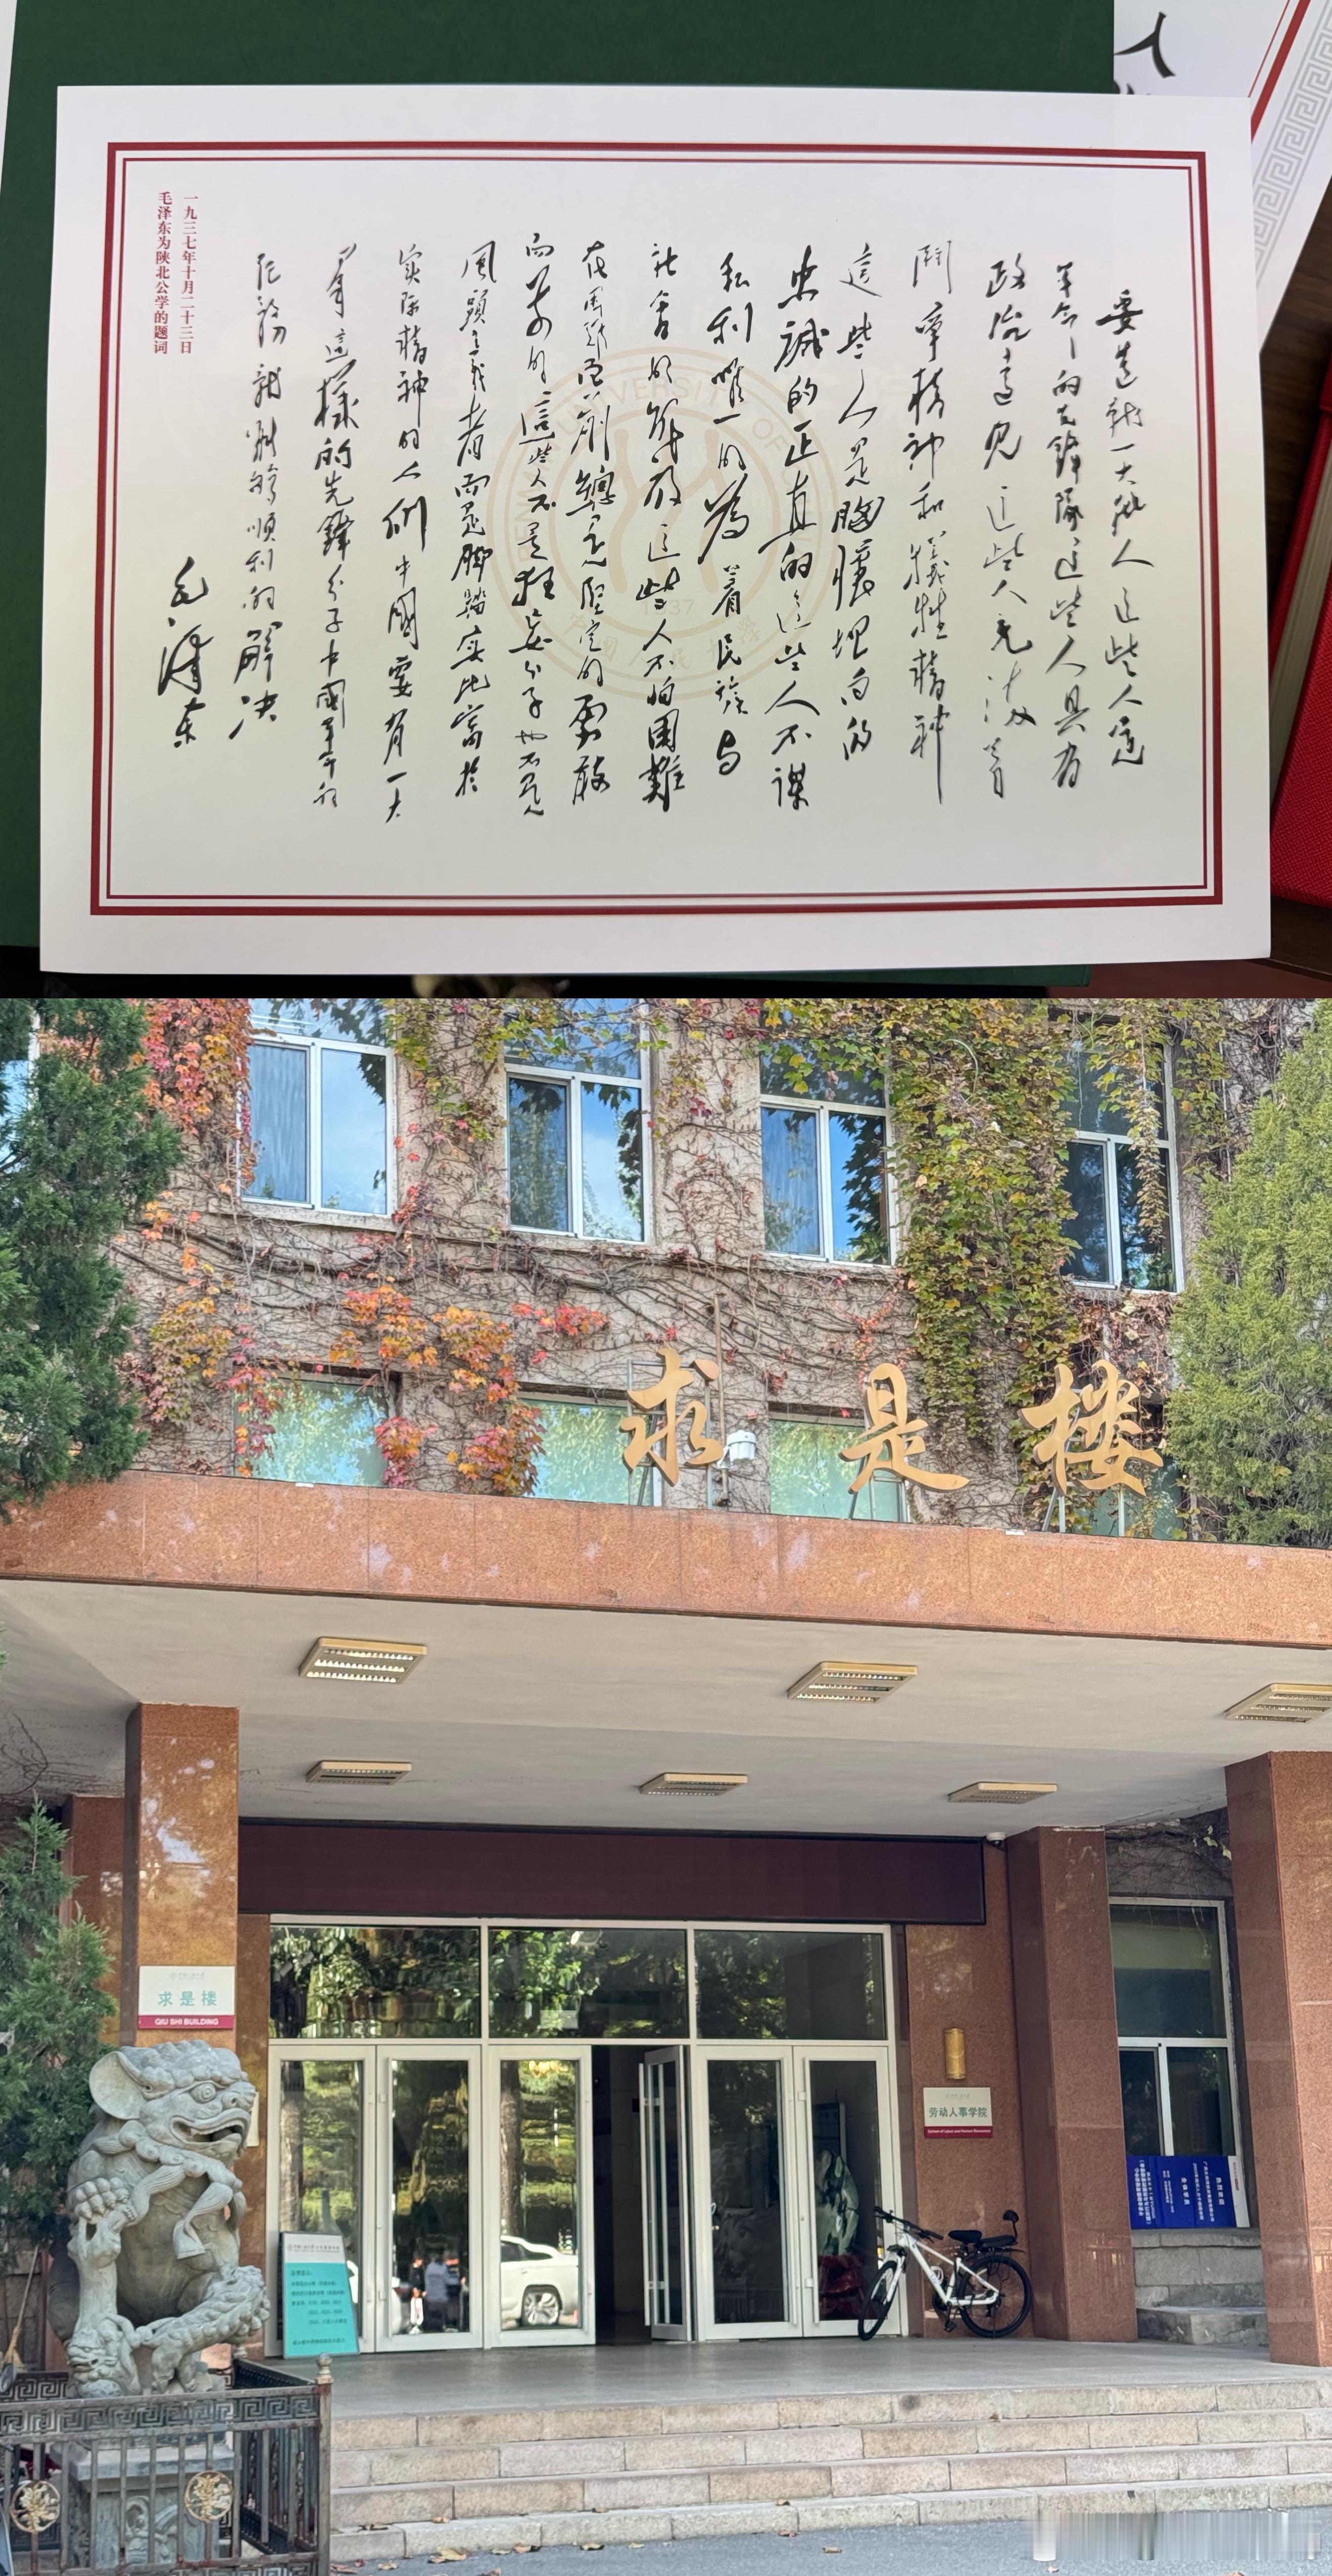 人
要造就一大批人这些人是
革命的先鋒隊这些人具有
政治遠见这些人充满着
鬥争精神和犧牲精神
這些人是胸懷坦白的
忠誠的正直的这些人不謀
私利唯一的為着民族与
社會的解放这些人不怕困難
在困难面前總是堅定的勇敢
向前的這些人不是狂妄分子也不是
風頭主義者而是脚踏实地富於
实际精神的人们中國要有一大
羣這樣的先鋒分子中國革命的
任務就能夠順利的解决
毛澤东
一九三七年十月二十三日
毛泽东为陕北公学的题词
UNIVERSITY OF
1937
中国人民大学
求是楼
求是楼
QIU SHI BUILDING
劳动人事学院
School of Labor and Human Resources